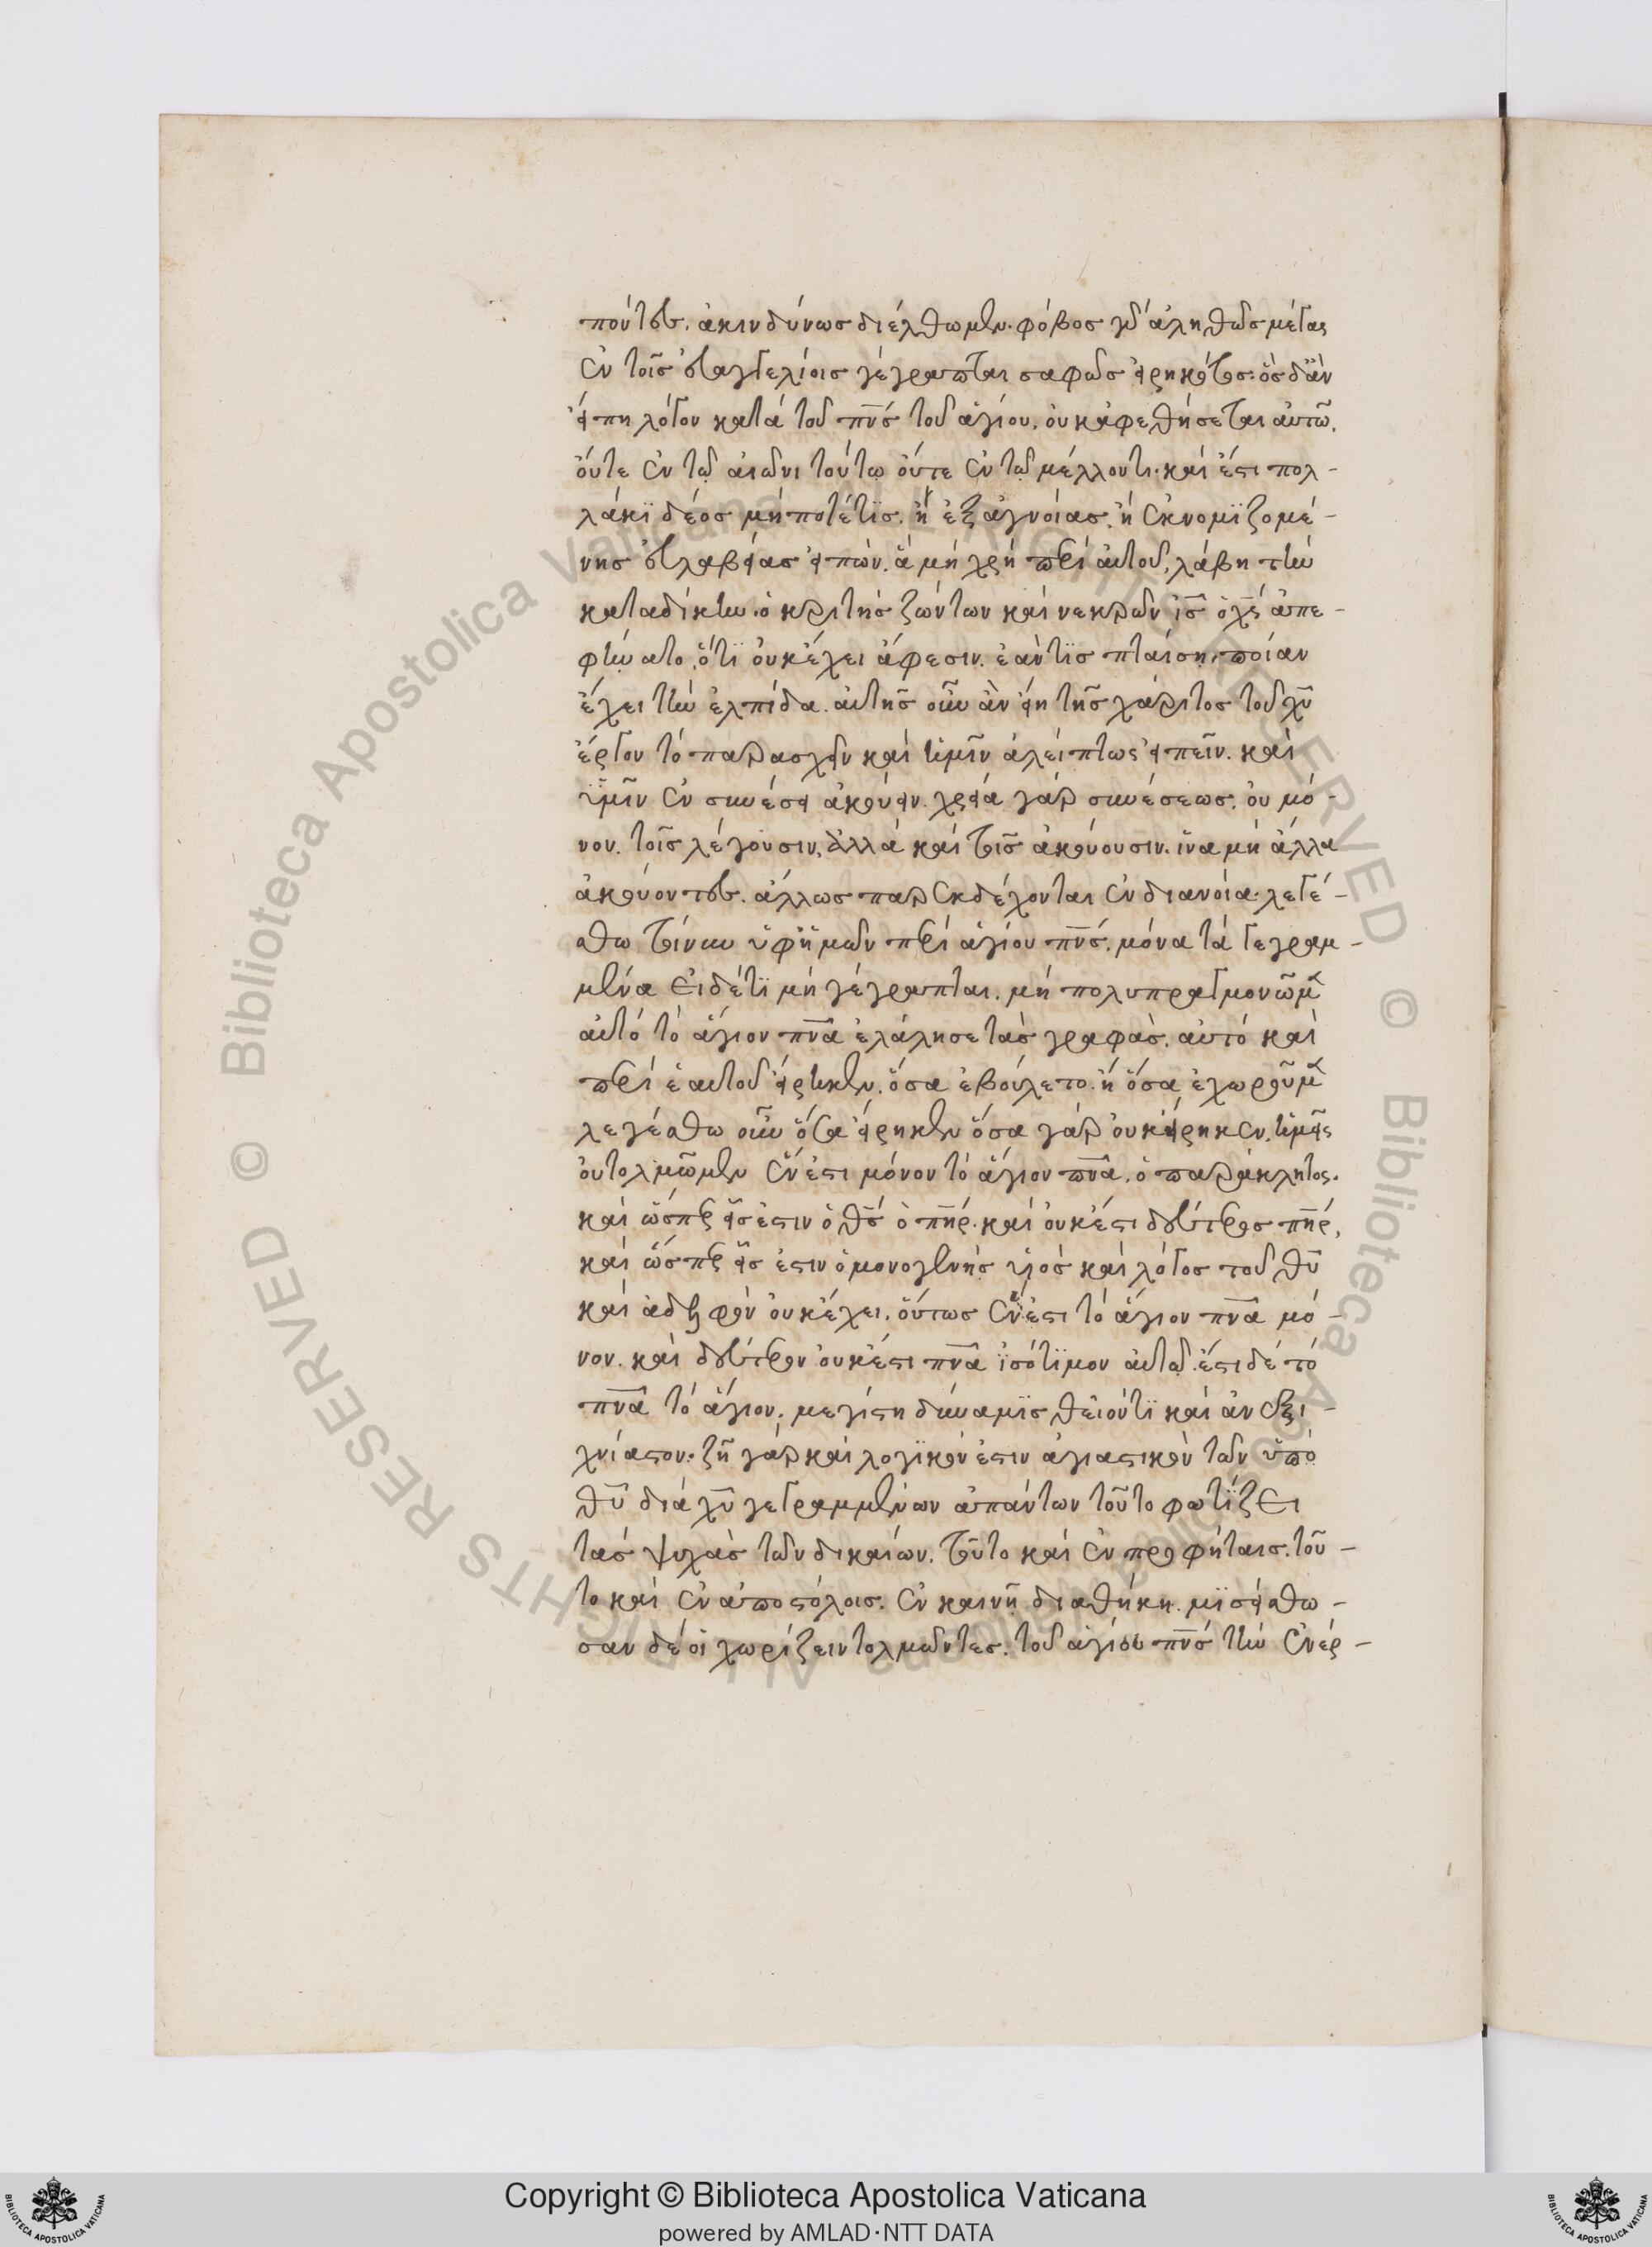 πόντες. ἀκινδύνως διέλθωμεν. φόβος γὰρ ἀληθῶς μέγας
ἐν τοῖς εὐαγγελίοις γέγραπται σαφῶς εἰρηκότος. ὃς δἂν
εἴπῃ λόγον κατὰ τοῦ πνς τοῦ ἁγίου. οὐκ ἀφεθήσεται αὐτῶ.
οὔτε ἐν τῷ αἰῶνι τούτω οὔτε ἐν τῷ μέλλοντι. καὶ ἔστι πολ-
λάκϊ δέος μήποτέ τϊς. ἢ ἐξ ἀγνοίας, ἢ ἐκ νομϊζομέ-
νης εὐλαβείας εἰπὼν. ἃ μὴ χρὴ περὶ αὐτοῦ, λάβη τὴν
καταδίκην. ὁ κριτὴς ζώντων καὶ νεκρῶν ις ὁ χς ἀπε-
φήνατο, ὅτϊ οὐκ ἔχει ἄφεσιν. ἐὰν τϊς πταίσῃ, ποίαν
ἔχει τὴν ἐλπίδα. αὐτῆς οὖν ἂν εἴη τῆς χάριτος τοῦ χυ
ἔργον τὸ παρασχεῖν καὶ ἡμῖν ἀλείπτως εἰπεῖν. καὶ
ὑμῖν ἐν συνέσει ἀκούειν. χρεία γὰρ συνέσεως. οὐ μό-
νον. τοῖς λέγουσιν, ἀλλὰ καὶ τοῖς ἀκούουσιν. ἵνα μὴ ἄλλα
ἀκούοντες. ἄλλως παρεκδέχονται ἐν διανοία. λεγέ-
σθω τοίνυν ὑφ ἡμῶν περὶ ἁγίου πνς. μόνα τὰ γεγραμ-
μένα εἰ δέ τϊ μὴ γέγραπται. μὴ πολυπραγμονῶμεν
αὐτὸ τὸ ἅγιον πνα ἐλάλησε τὰς γραφὰς. αὐτὸ καὶ
περὶ ἑαυτοῦ εἴρηκεν. ὅσα ἐβούλετο. ἢ ὅσα ἐχωροῦμεν
λεγέσθω οὖν ὅσα εἴρηκεν ὅσα γὰρ οὐκ εἴρηκεν. ἡμεῖς
οὐ τολμῶμεν ἕν ἐστι μόνον τὸ ἅγιον πνα. ὁ παράκλητος.
καὶ ὥσπερ εἷς ἐστιν ὁ θς ὁ πηρ. καὶ οὐκ ἔστι δεύτερος πηρ,
καὶ ὥσπερ εἷς ἐστιν ὁ μονογενὴς υἱὸς καὶ λόγος τοῦ θυ
καὶ ἀδελφὸν οὐκ ἔχει. οὕτως ἕν ἐστι τὸ ἅγιον πνα μό-
νον. καὶ δεύτερον οὐκ ἔστι πνα ἰσότϊμον αὐτῷ. ἔστι δὲ τὸ
πνα τὸ ἅγιον. μεγίστη δύναμϊς θεῖόν τϊ καὶ ἀνεξι-
χνίαστον. ζῆ γὰρ καὶ λογϊκόν ἐστιν ἁγιαστικὸν τῶν ὑπὸ
θυ διὰ χυ γεγραμμένων ἁπάντων τοῦτο φωτίζει
τὰς ψυχὰς τῶν δικαίων. τοῦτο καὶ ἐν προφήταις. τοῦ-
το καὶ ἐν ἀποστόλοις. ἐν καινῆ διαθήκη. μϊσείσθω-
σαν δὲ οἱ χωρίζειν τολμῶντες. τοῦ ἁγίου πνς τὴν ἐνέρ-
Copyright © Biblioteca Apostolica Vaticana
powered by AMLAD·NTT DATA